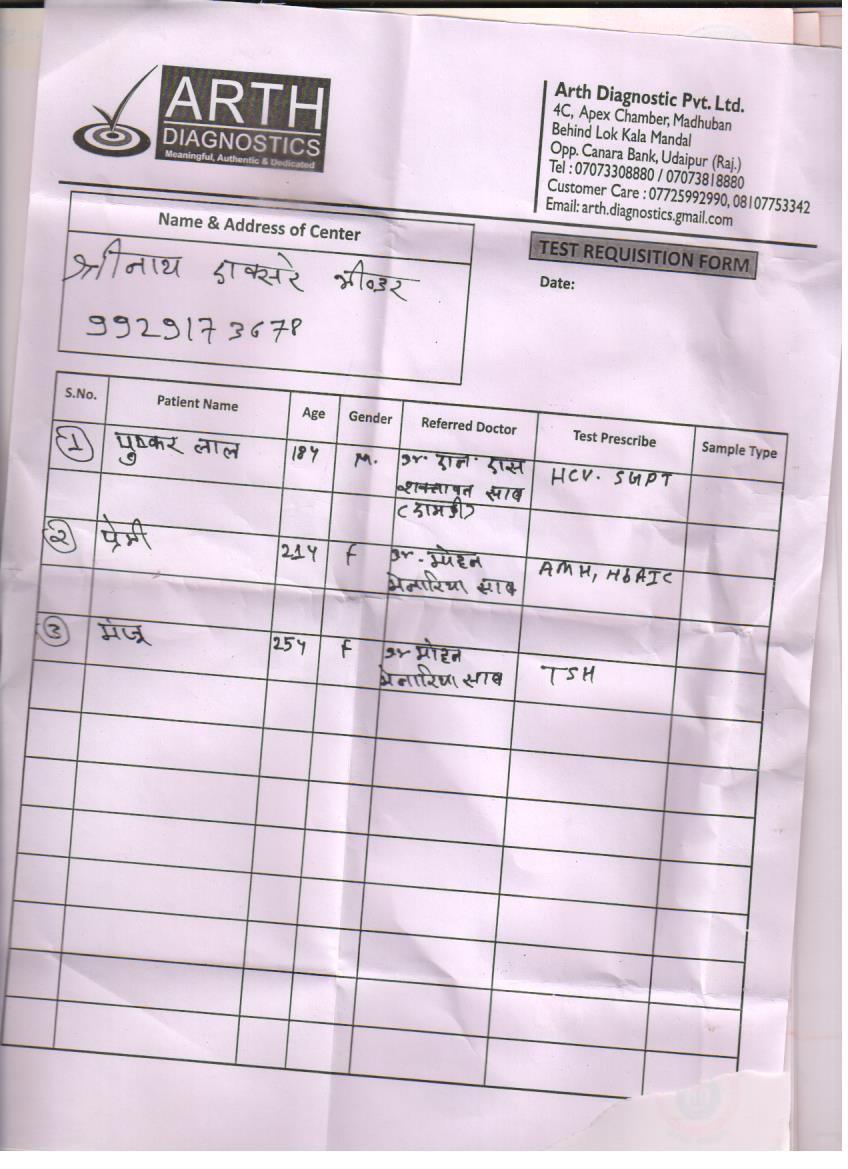 ARTH
DIAGNOSTICS
Meaningful, Authentic & Dedicated
Arth Diagnostic Pvt. Ltd.
4C, Apex Chamber, Madhuban
Behind Lok Kala Mandal
Opp. Canara Bank, Udaipur (Raj.)
Tel : 07073308880 / 07073818880
Customer Care : 07725992990, 08107753342
Email: arth.diagnostics.gmail.com
Name & Address of Center
श्रीनाथ एक्सरे भीण्डर
9929173678
TEST REQUISITION FORM
Date:
S.No. Patient Name Age Gender Referred Doctor Test Prescribe Sample Type
1 पुष्कर लाल 18Y M. Dr. दान दास HCV. SGPT
शक्तावत साब
2 प्रेमी 21Y F Dr. मोहन AMH, HbA1C
मेनारिया साब
3 मंजू 25Y F Dr मोहन
मेनारिया साब TSH